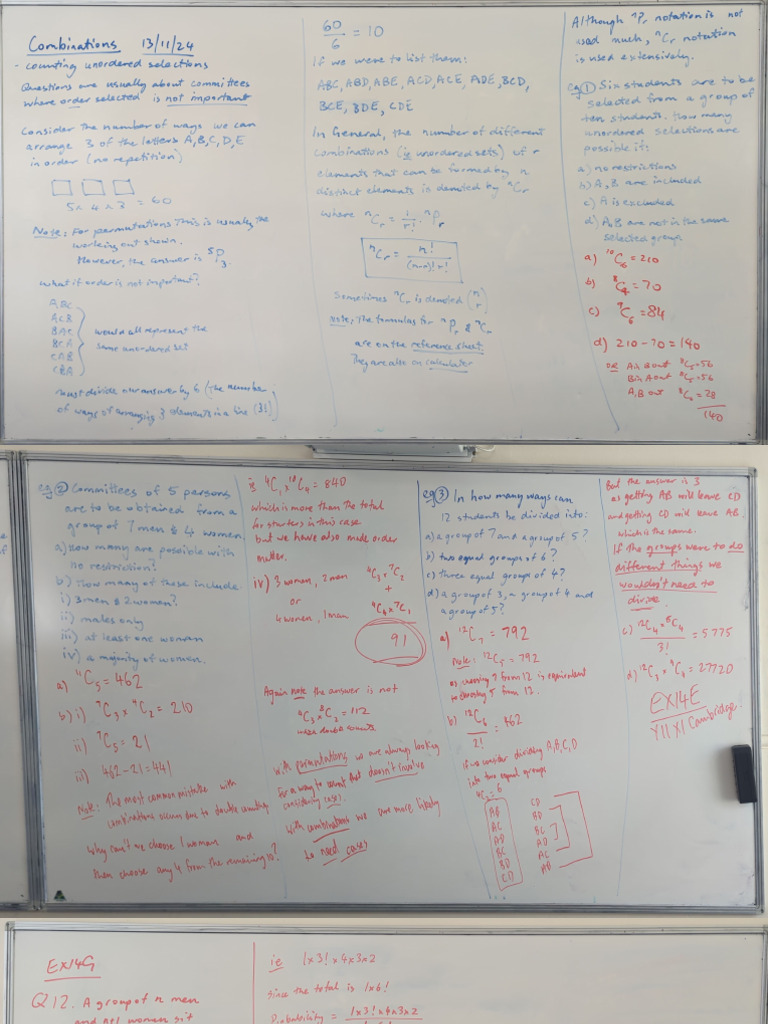 Combinations 13/11/24
- counting unordered selections
Questions are usually about committees
where order selected is not important
Consider the number of ways we can
arrange 3 of the letters A,B,C,D,E
in order (no repetition)
5 x 4 x 3 = 60
Note: For permutations this is usually the
working out shown.
However, the answer is ⁵P₃.
what if order is not important?
ABC
ACB
BAC
BCA
CAB
CBA
would all represent the
same unordered set
must divide our answer by 6 (the number
of ways of arranging 3 elements in a line (3!))
60/6 = 10
If we were to list them:
ABC, ABD, ABE, ACD, ACE, ADE, BCD,
BCE, BDE, CDE
In General, the number of different
combinations (ie unordered sets) of r
elements that can be formed by n
distinct elements is denoted by ⁿCr
where ⁿCr = 1/r! . ⁿPr
ⁿCr = n!/(n-r)! r!
Sometimes ⁿCr is denoted (n r)
Note: The formulas for ⁿPr & ⁿCr
are on the reference sheet.
They are also on calculator
Although ⁿPr notation is not
used much, ⁿCr notation
is used extensively.
eg ① Six students are to be
selected from a group of
ten students. How many
unordered selections are
possible if:
a) no restrictions
b) A, B are included
c) A is excluded
d) A,B are not in the same
selected group
a) ¹⁰C₆ = 210
b) ⁸C₄ = 70
c) ⁹C₆ = 84
d) 210 - 70 = 140
OR A in B out ⁸C₅ = 56
B in A out ⁸C₅ = 56
A,B out ⁸C₆ = 28
140
eg ② Committees of 5 persons
are to be obtained from a
group of 7 men & 4 women
a) How many are possible with
no restriction?
b) How many of these include
i) 3 men & 2 women?
ii) males only
iii) at least one woman
iv) a majority of women.
a) ¹¹C₅ = 462
b) i) ⁷C₃ x ⁴C₂ = 210
ii) ⁷C₅ = 21
iii) 462 - 21 = 441
Note: The most common mistake with
combinations occurs due to double counting
Why can't we choose 1 woman and
then choose any 4 from the remaining 10?
is ⁴C₁ x ¹⁰C₄ = 840
which is more than the total
for starters in this case
but we have also made order
matter.
iv) 3 women, 2 men ⁴C₃ x ⁷C₂
or +
4 women, 1 man ⁴C₄ x ⁷C₁
91
Again note the answer is not
⁴C₃ x ⁸C₂ = 112
double counts
With permutations we are always looking
for a way to count that doesn't involve
considering cases.
With combinations we are more likely
to need cases
eg ③ In how many ways can
12 students be divided into:
a) a group of 7 and a group of 5?
b) two equal groups of 6?
c) three equal groups of 4?
d) a group of 3, a group of 4 and
a group of 5?
a) ¹²C₇ = 792
Note: ¹²C₅ = 792
as choosing 7 from 12 is equivalent
to choosing 5 from 12.
b) ¹²C₆/2! = 462
if we consider dividing A,B,C,D
into two equal groups
⁴C₂ = 6
AB CD
AC BD
AD BC
BC AD
BD AC
CD AB
But the answer is 3
as getting AB will leave CD
and getting CD will leave AB
which is the same.
If the groups were to do
different things we
wouldn't need to
divide.
c) ¹²C₄ x ⁸C₄/3! = 5775
d) ¹²C₃ x ⁹C₄ = 27720
EX14E
Y11 X1 Cambridge.
EX14G
Q12. A group of n men
and n+1 women sit
ie 1x3! x 4x3x2
since the total is 1x6!
Probability = 1x3! x 4x3x2